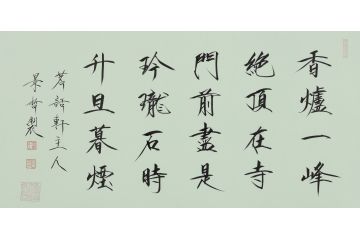 香爐一峰
絶頂在寺
門前盡是
玲瓏石時
升旦暮煙
茗語軒主人